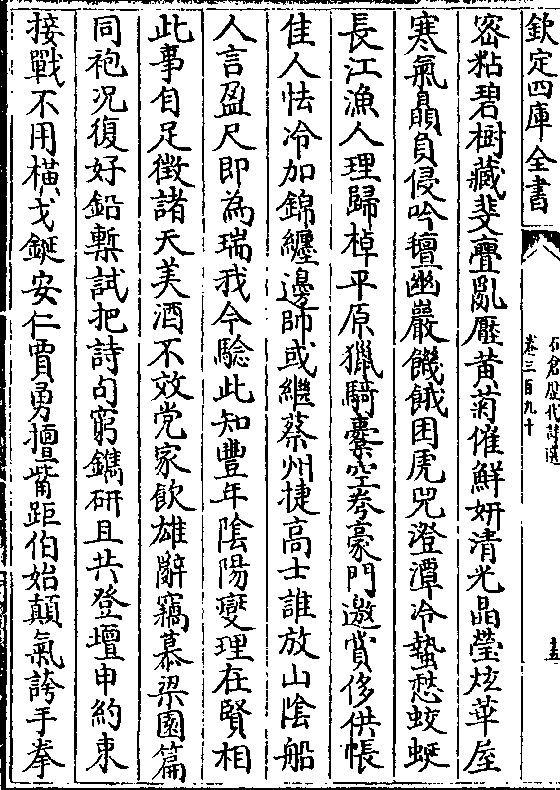 欽定四庫全書
石倉歷代詩選
卷三百九十
密粘碧樹藏斐亹亂壓黄菊催鮮妍清光晶瑩炫華屋
寒氣贔負侵吟氊幽巖饑餓困虎兕澄潭冷蟄愁蛟蜒
長江漁人理歸棹平原獵騎櫜空弮豪門邀賞侈供帳
佳人怯冷加錦纏邊師或繼蔡州捷高士誰放山陰船
人言盈尺即為瑞我今驗此知豐年陰陽變理在賢相
此事自足徵諸天美酒不效党家飲雄辭竊慕梁園篇
同袍况復好鉛槧試把詩句窮鐫研且共登壇申約束
接戰不用橫戈鋋安仁賈勇擅觜距伯始顛氣誇手拳